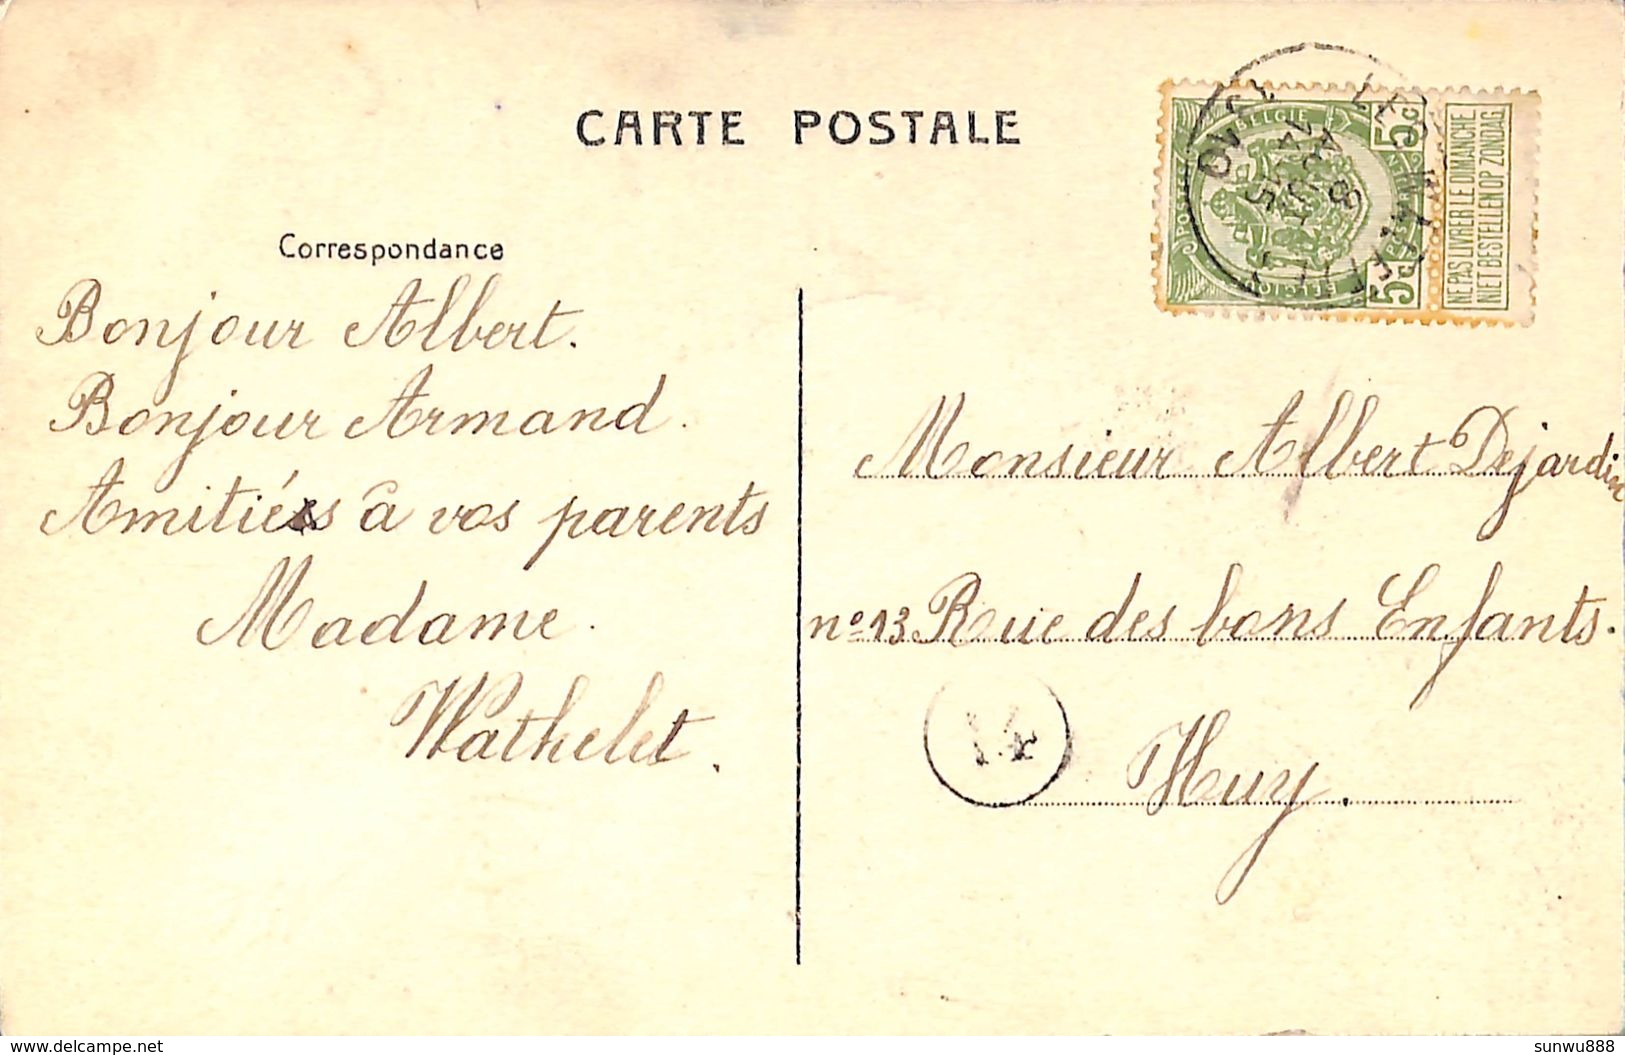 CARTE POSTALE
Correspondance
Bonjour Albert.
Bonjour Armand.
Amitiés à vos parents
Madame.
Wathelet.
5c BELGIE 5c
BELGIQUE
NE PAS LIVRER LE DIMANCHE
NIET BESTELLEN OP ZONDAG
8
AOUT
14 15
1910
Monsieur Albert Dejardin
nº 13 Rue des bons Enfants.
14
Huy.
delcampe.net
sunwu888